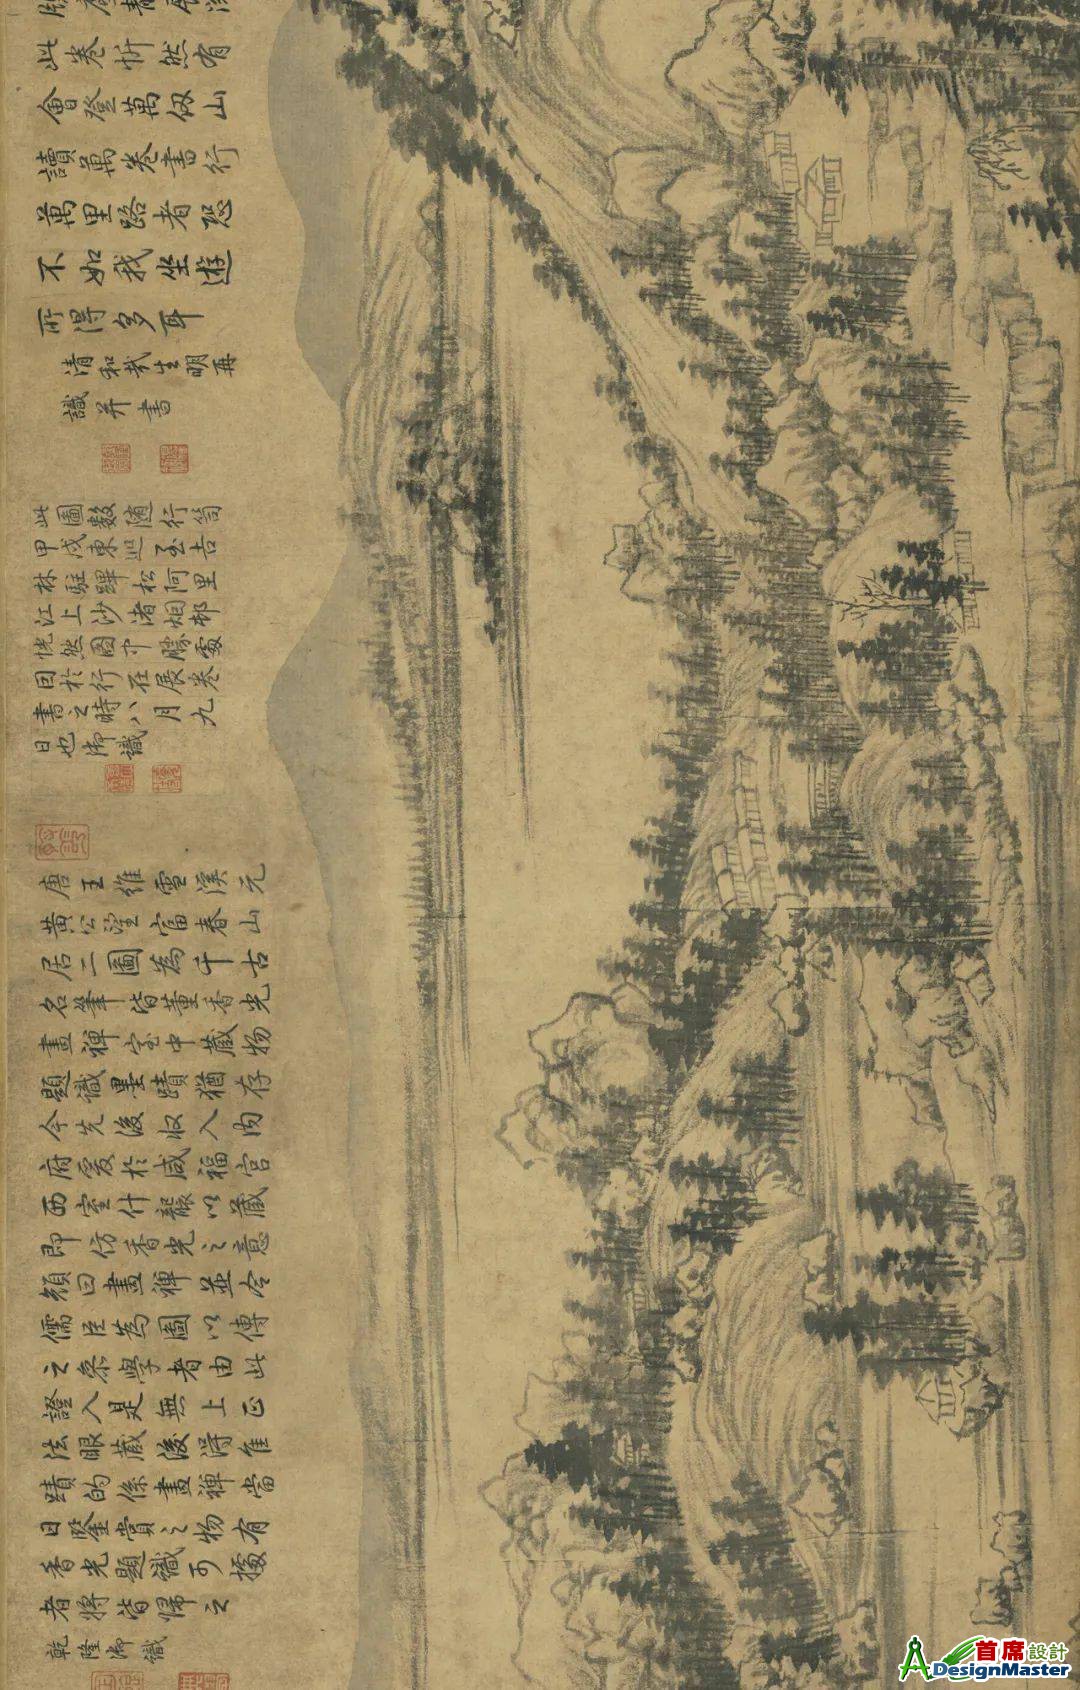 此卷忻然有
會登萬仞山
讀萬卷書行
萬里路者恐
不如我坐遊
所得多耳
清和哉生明再
識并書
此圖數隨行笥
甲戌東巡至吉
林駐蹕松阿里
江上沙渚烟邨
恍然圖中勝處
回於行在展卷
書之時八月九
日也御識
唐王維雪溪元
黃公望富春山
居二圖為千古
名筆皆董香光
畫禪室中藏物
題識墨蹟猶存
今先後收入內
府爰於咸福宮
西室什襲以藏
即仿香光之意
顏曰畫禪並令
儒臣為圖以傳
之參學者由此
證入是無上正
法眼藏後得隹
蹟的係畫禪當
日鑒賞之物有
香光題識可據
者將皆歸之
乾隆御識
首席設計
ADesignMaster